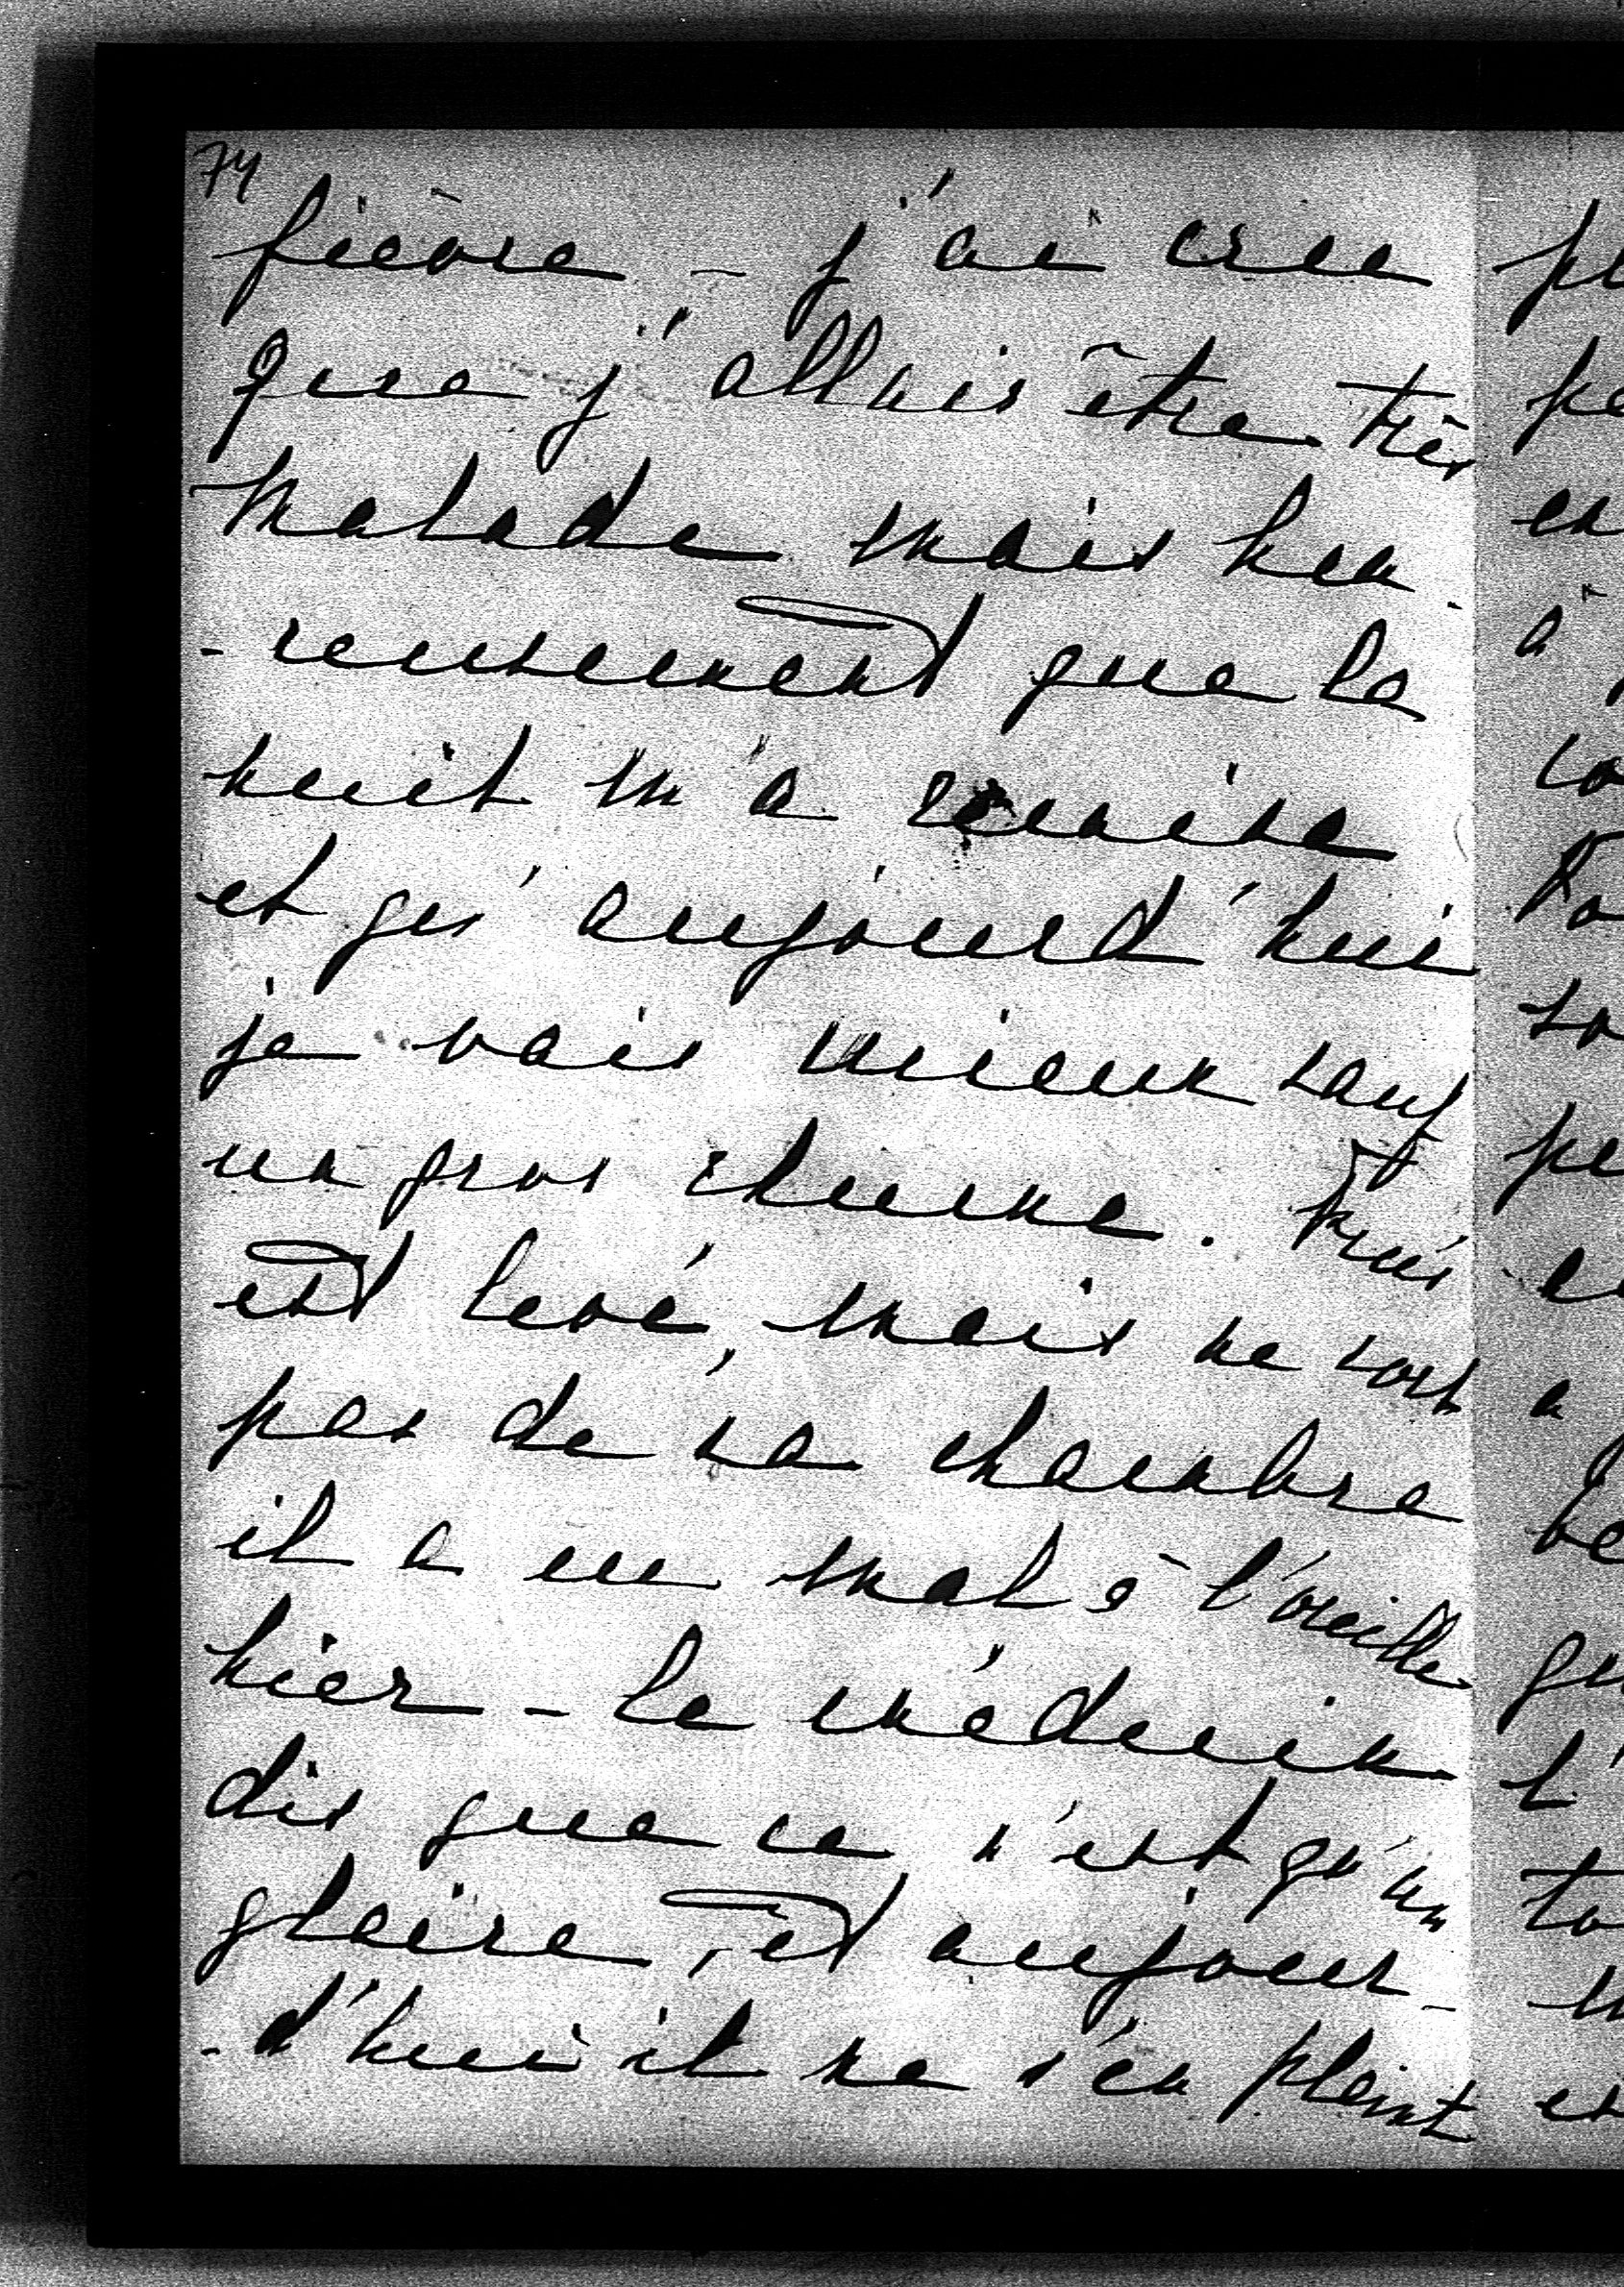 74
fièvre - j'ai cru
que j'allais être très
malade mais heu-
-reusement que la
nuit m'a remise
et qu'aujourd'hui
je vais mieux sauf
un gros rhume.
est levé, mais ne sort
pas de sa chambre
il a eu mal à l'oreille
hier - le médecin
dis que ce n'est qu'un
glaire, et aujour-
-d'hui il ne s'en plaint